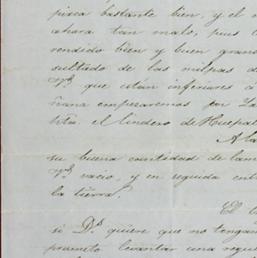 pisca bastante bien, y el m
ahora tan malo, pues l
rendido bien y buen gran
sultado de las milpas de
que estan inferiores á
ñana empesaremos por La
el lindero de Huepal
A la
su buena cantidad de lam
vacio, y en seguida ent
la tierra.
El
si D.s quiere que no tengam
promete levantar una regu